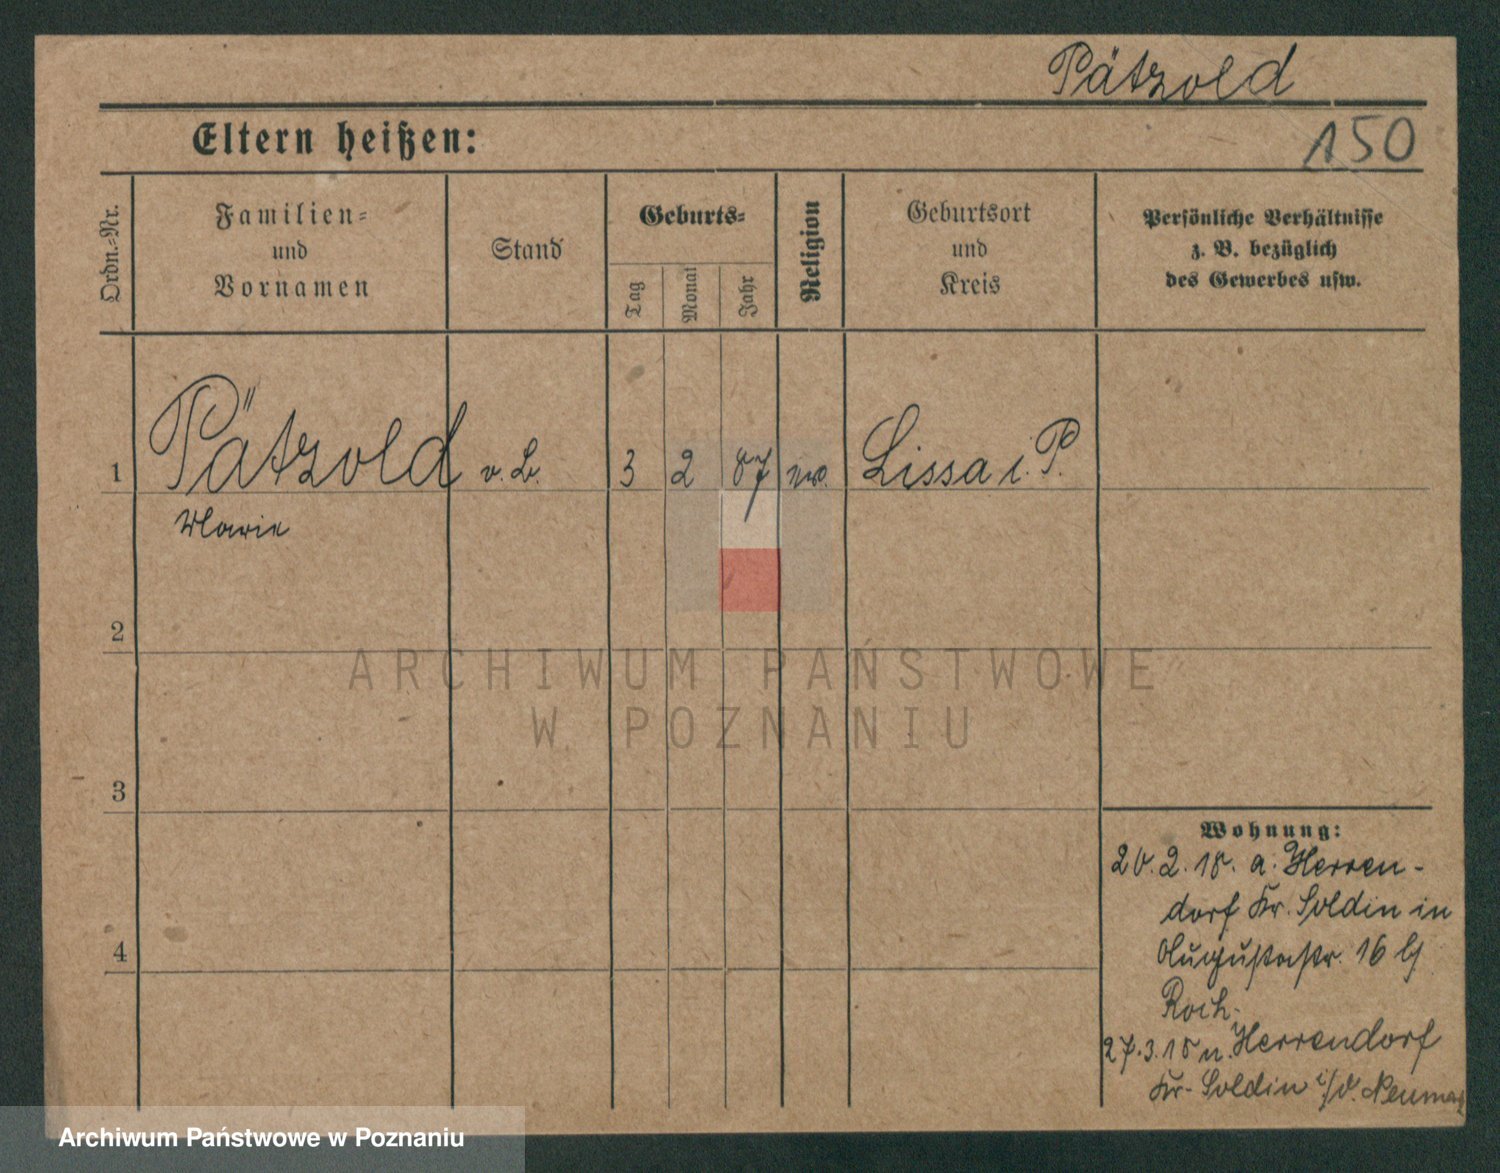 Pätzold
150
Eltern heißen:
Ordn.=Nr.
Familien=
und
Vornamen
Stand
Geburts=
Tag
Monat
Jahr
Religion
Geburtsort
und
Kreis
Persönliche Verhältnisse
z. B. bezüglich
des Gewerbes usw.
1 Pätzold v. B. 3 2 87 ev. Lissa i. P.
Marie
2
3
4
Wohnung:
20. 2. 18. a. Herren-
dorf Kr. Soldin in
Augustastr. 16 b/
Roch.
27. 3. 18 n. Herrendorf
Kr. Soldin i/d. Neumar
ARCHIWUM PAŃSTWOWE
W POZNANIU
Archiwum Państwowe w Poznaniu